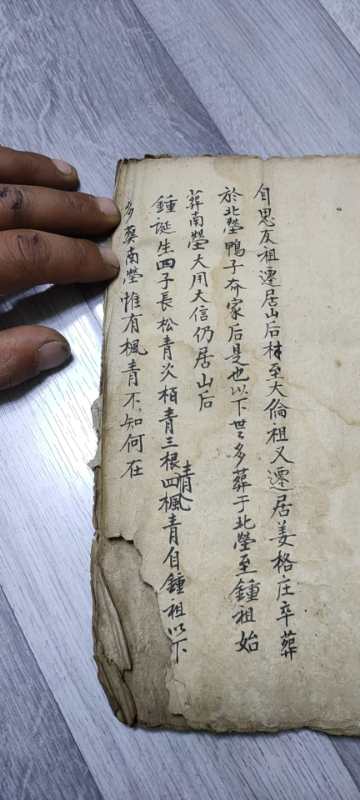 自思友祖遷居山后林至大倫祖又遷居姜格庄卒葬
於北塋鴨子夼家后是也以下世〻多葬于北塋至鍾祖始
葬南塋大用大信仍居山后
鍾誕生四子長松青次栢青三根青四楓青自鍾祖以下
多葬南塋惟有楓青不知何在